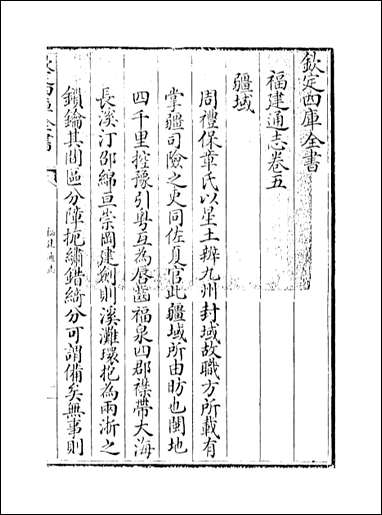 欽定四庫全書
福建通志卷五
疆域
周禮保章氏以星土辨九州封域故職方所載有
掌疆司險之史同佐夏官此疆域所由昉也閩地
四千里控豫引粵互為唇齒福泉四郡襟帶大海
長溪汀邵綿亘崇岡建劍則溪灘環抱為兩浙之
鎖鑰其間區分障扼繡錯綺分可謂備矣無事則
福建通志